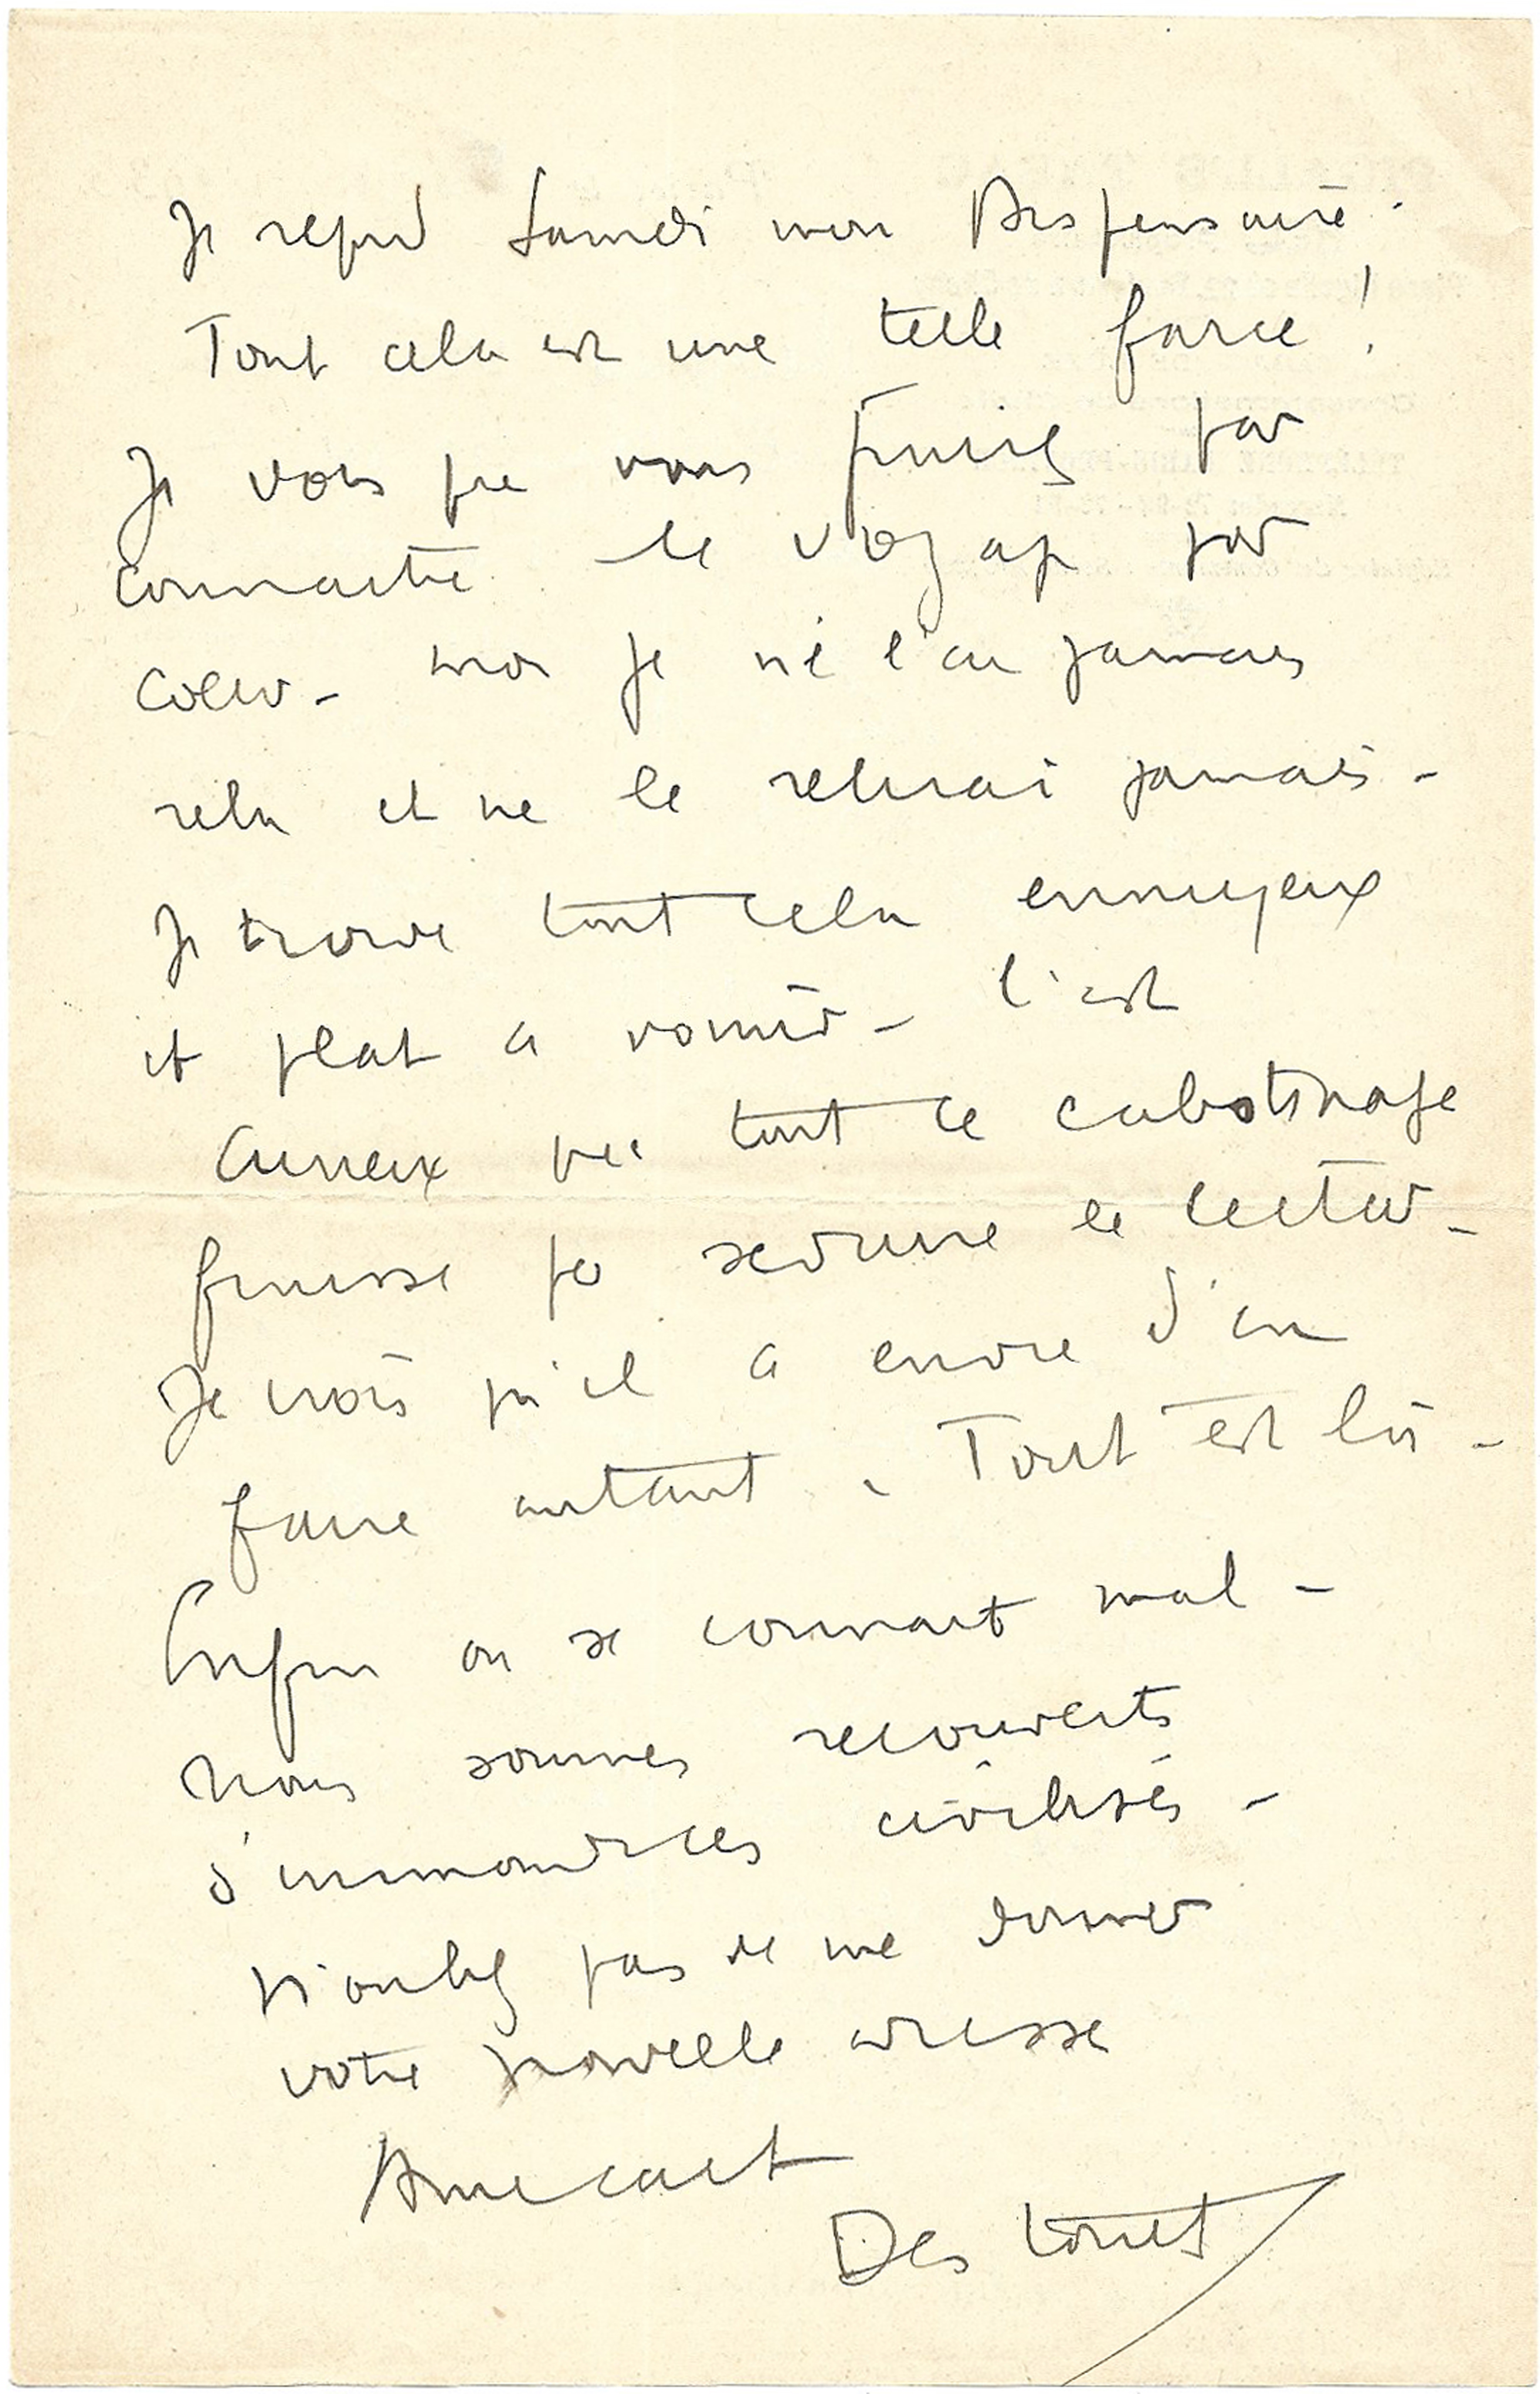 Je reprend Samedi mon Dispensaire.
Tout cela est une telle farce !
Je vois que vous finirez par
connaitre le voyage par
coeur - moi je ne l'ai jamais
relu et ne le relirai jamais -
Je trouve tout cela ennuyeux
et plat a vomir - C'est
curieux que tout ce cabotinage
puisse  seduire le lecteur -
Je crois qu'il a envie d'en
faire autant. Tout est là -
Enfin on se connait mal -
Nous sommes recouverts
d'immondices civilisés -
N'oubliez pas de me donner
votre nouvelle adresse
Amicalt
Destouches